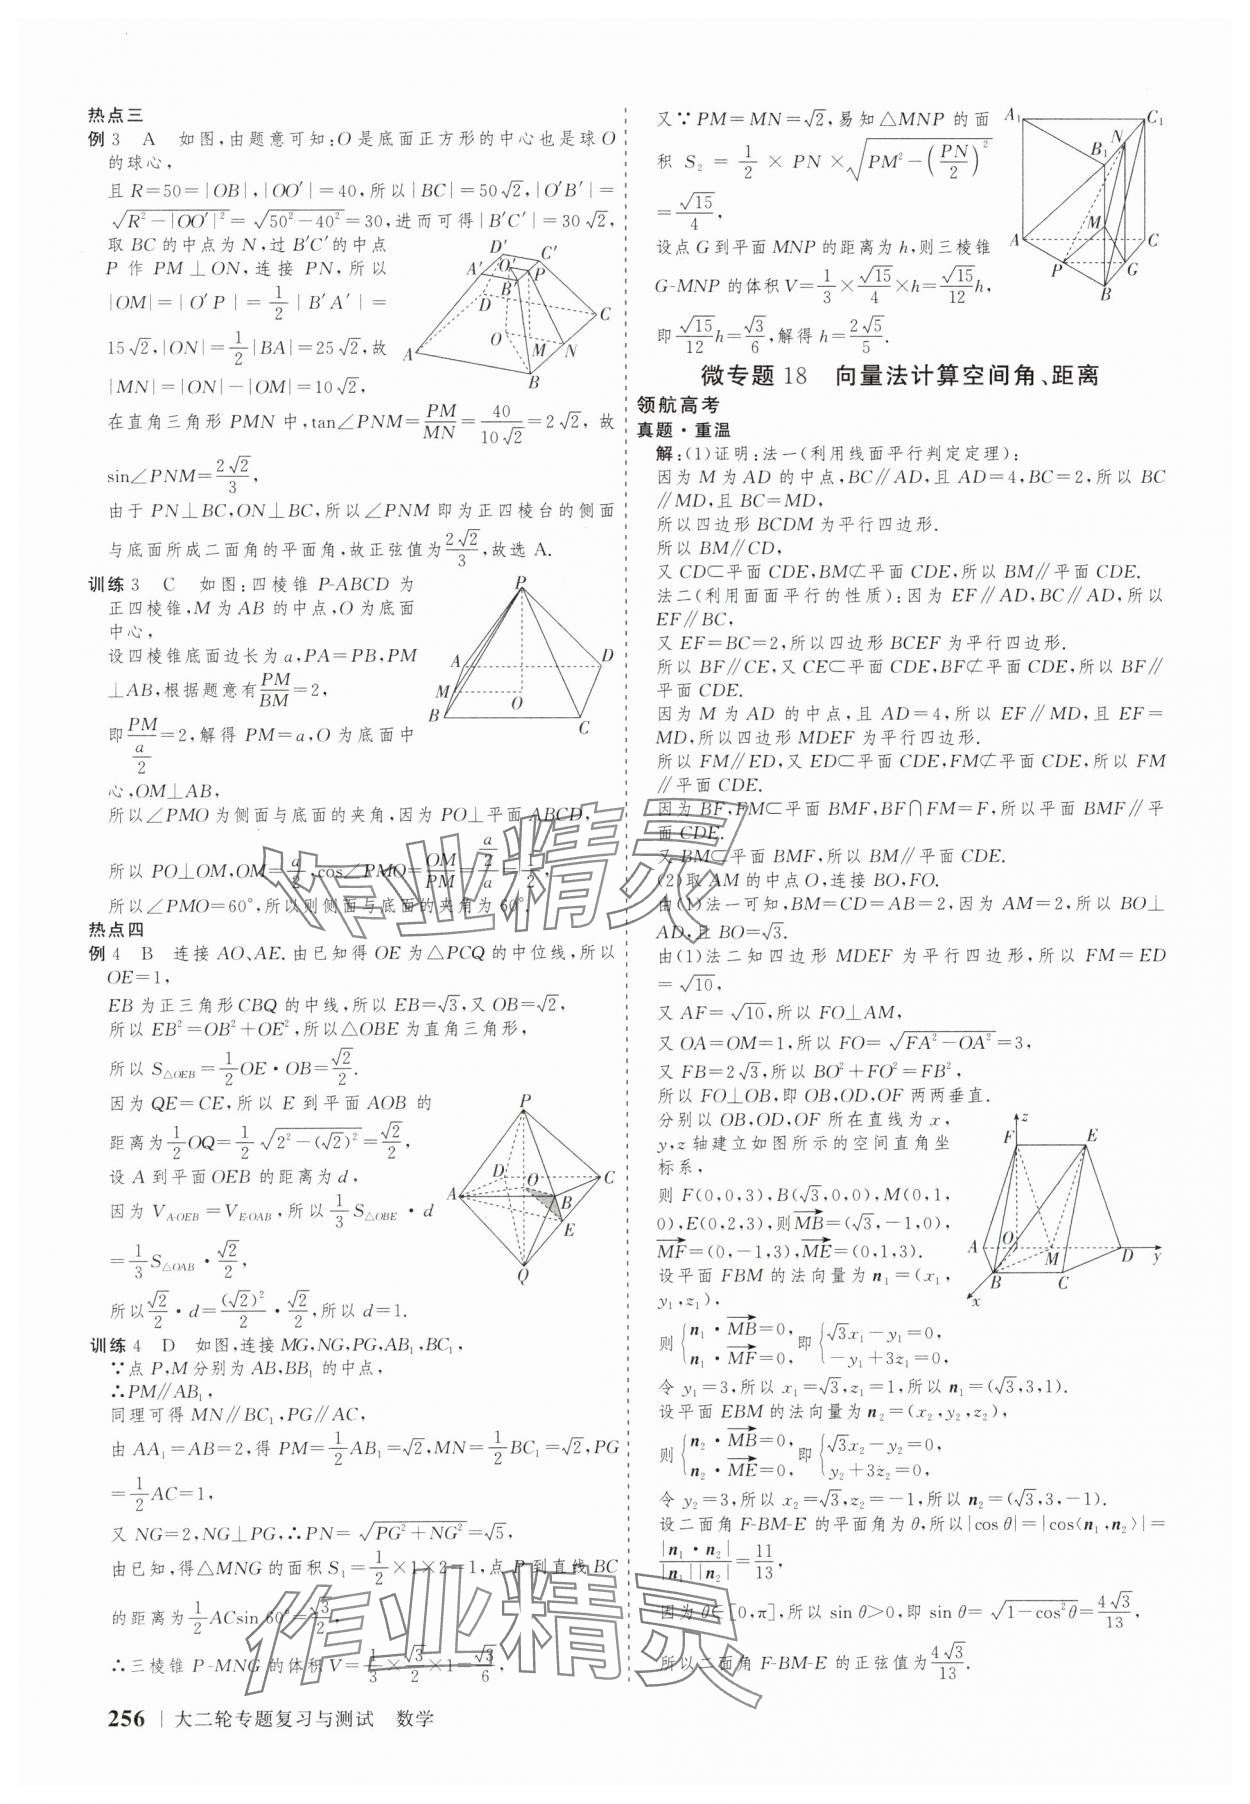 热点三
例 3　A　如图,由题意可知:O 是底面正方形的中心也是球 O
的球心,
且 R=50=|OB|,|OO′|=40,所以|BC|=50√2,|O′B′|=
√(R²-|OO′|²)=√(50²-40²)=30,进而可得|B′C′|=30√2,
取 BC 的中点为 N,过 B′C′的中点
P 作 PM⊥ON,连接 PN,所以
|OM|=|O′P|=1/2|B′A′|=
15√2,|ON|=1/2|BA|=25√2,故
|MN|=|ON|-|OM|=10√2,
在直角三角形 PMN 中,tan∠PNM=PM/MN=40/(10√2)=2√2,故
sin∠PNM=2√2/3,
由于 PN⊥BC,ON⊥BC,所以∠PNM 即为正四棱台的侧面
与底面所成二面角的平面角,故正弦值为2√2/3,故选 A.
D′ C′ A′ O′ P B′ D C O A M N B
训练 3　C　如图:四棱锥 P-ABCD 为
正四棱锥,M 为 AB 的中点,O 为底面
中心,
设四棱锥底面边长为 a,PA=PB,PM
⊥AB,根据题意有PM/BM=2,
即PM/(a/2)=2,解得 PM=a,O 为底面中
心,OM⊥AB,
所以∠PMO 为侧面与底面的夹角,因为 PO⊥平面 ABCD,
所以 PO⊥OM,OM=a/2,cos∠PMO=OM/PM=(a/2)/a=1/2,
所以∠PMO=60°,所以则侧面与底面的夹角为 60°.
P A D M O B C
热点四
例 4　B　连接 AO、AE.由已知得 OE 为△PCQ 的中位线,所以
OE=1,
EB 为正三角形 CBQ 的中线,所以 EB=√3,又 OB=√2,
所以 EB²=OB²+OE²,所以△OBE 为直角三角形,
所以 S△OEB=1/2OE·OB=√2/2.
因为 QE=CE,所以 E 到平面 AOB 的
距离为1/2OQ=1/2√(2²-(√2)²)=√2/2,
设 A 到平面 OEB 的距离为 d,
因为 V_A-OEB=V_E-OAB,所以1/3S△OBE·d
=1/3S△OAB·√2/2,
所以√2/2·d=(√2)²/2·√2/2,所以 d=1.
P D C O A B E Q
训练 4　D　如图,连接 MG,NG,PG,AB₁,BC₁,
∵点 P,M 分别为 AB,BB₁ 的中点,
∴PM∥AB₁,
同理可得 MN∥BC₁,PG∥AC,
由 AA₁=AB=2,得 PM=1/2AB₁=√2,MN=1/2BC₁=√2,PG
=1/2AC=1,
又 NG=2,NG⊥PG,∴PN=√(PG²+NG²)=√5,
由已知,得△MNG 的面积 S₁=1/2×1×2=1,点 P 到直线 BC
的距离为1/2ACsin 60°=√3/2,
∴三棱锥 P-MNG 的体积 V=1/3×√3/2×1=√3/6,
256 | 大二轮专题复习与测试　数学
又∵PM=MN=√2,易知△MNP 的面
积 S₂=1/2×PN×√(PM²-(PN/2)²)
=√15/4,
设点 G 到平面 MNP 的距离为 h,则三棱锥
G-MNP 的体积 V=1/3×√15/4×h=√15/12h,
即√15/12h=√3/6,解得 h=2√5/5.
A₁ C₁ B₁ N M A C P G B
微专题 18　向量法计算空间角、距离
领航高考
真题·重温
解:(1)证明:法一(利用线面平行判定定理):
因为 M 为 AD 的中点,BC∥AD,且 AD=4,BC=2,所以 BC
∥MD,且 BC=MD,
所以四边形 BCDM 为平行四边形.
所以 BM∥CD,
又 CD⊂平面 CDE,BM⊄平面 CDE,所以 BM∥平面 CDE.
法二(利用面面平行的性质):因为 EF∥AD,BC∥AD,所以
EF∥BC,
又 EF=BC=2,所以四边形 BCEF 为平行四边形.
所以 BF∥CE,又 CE⊂平面 CDE,BF⊄平面 CDE,所以 BF∥
平面 CDE.
因为 M 为 AD 的中点,且 AD=4,所以 EF∥MD,且 EF=
MD,所以四边形 MDEF 为平行四边形.
所以 FM∥ED,又 ED⊂平面 CDE,FM⊄平面 CDE,所以 FM
∥平面 CDE.
因为 BF,FM⊂平面 BMF,BF∩FM=F,所以平面 BMF∥平
面 CDE.
又 BM⊂平面 BMF,所以 BM∥平面 CDE.
(2)取 AM 的中点 O,连接 BO,FO.
由(1)法一可知,BM=CD=AB=2,因为 AM=2,所以 BO⊥
AD,且 BO=√3.
由(1)法二知四边形 MDEF 为平行四边形,所以 FM=ED
=√10,
又 AF=√10,所以 FO⊥AM,
又 OA=OM=1,所以 FO=√(FA²-OA²)=3,
又 FB=2√3,所以 BO²+FO²=FB²,
所以 FO⊥OB,即 OB,OD,OF 两两垂直.
分别以 OB,OD,OF 所在直线为 x,
y,z 轴建立如图所示的空间直角坐
标系,
则 F(0,0,3),B(√3,0,0),M(0,1,
0),E(0,2,3),则MB→=(√3,-1,0),
MF→=(0,-1,3),ME→=(0,1,3).
设平面 FBM 的法向量为 n₁=(x₁,
y₁,z₁),
则{n₁·MB→=0, n₁·MF→=0, 即{√3x₁-y₁=0, -y₁+3z₁=0,
令 y₁=3,所以 x₁=√3,z₁=1,所以 n₁=(√3,3,1).
设平面 EBM 的法向量为 n₂=(x₂,y₂,z₂),
则{n₂·MB→=0, n₂·ME→=0, 即{√3x₂-y₂=0, y₂+3z₂=0,
令 y₂=3,所以 x₂=√3,z₂=-1,所以 n₂=(√3,3,-1).
设二面角 F-BM-E 的平面角为 θ,所以|cos θ|=|cos⟨n₁,n₂⟩|=
|n₁·n₂|/(|n₁||n₂|)=11/13,
因为 θ∈[0,π],所以 sin θ>0,即 sin θ=√(1-cos²θ)=4√3/13,
所以二面角 F-BM-E 的正弦值为4√3/13.
z F E A O M D y B C x
作业精灵
作业精灵